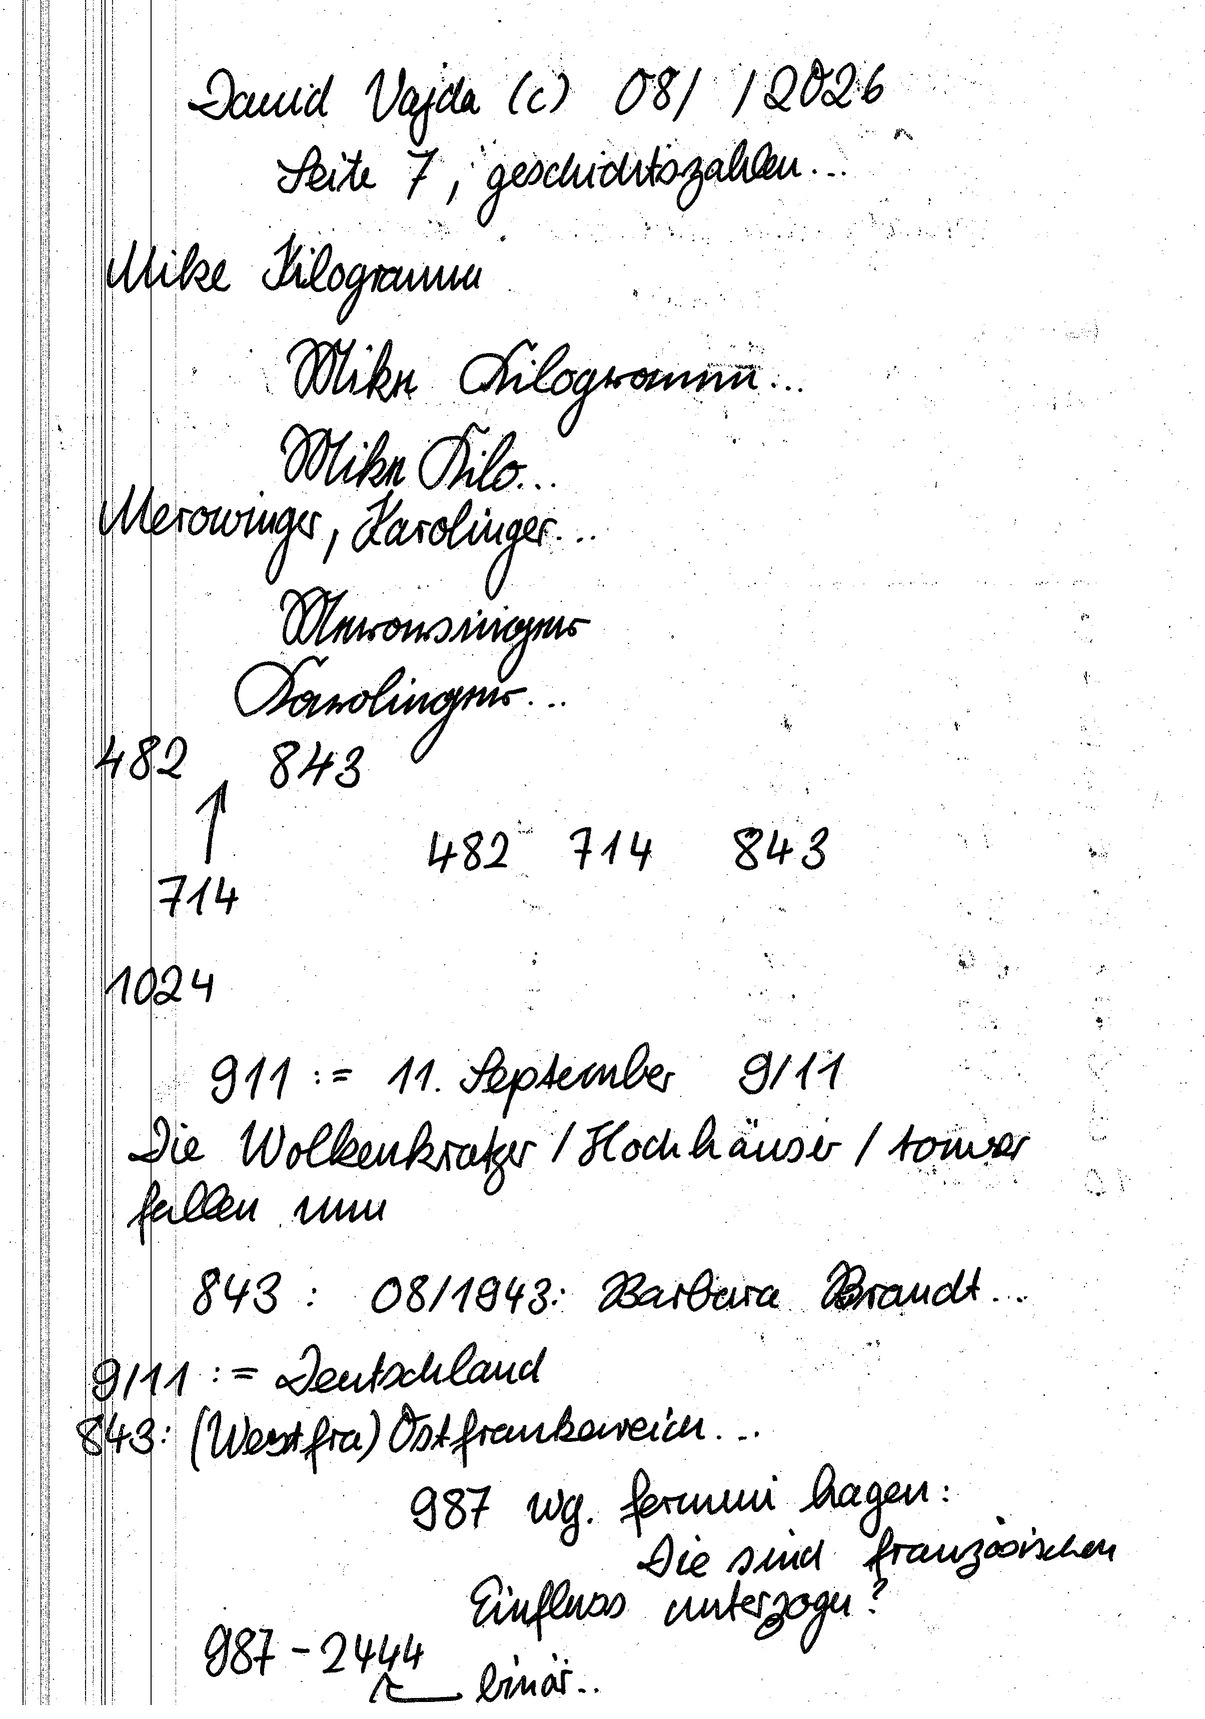 David Vajda (c) 08/ /2026
Seite 7, geschichtszahlen...
Mike Kilogramm
Mike Kilogramm...
Mike Kilo...
Merowinger, Karolinger...
Merowinger
Karolinger...
482 843
482 714 843
714
1024
911 := 11. September 9/11
Die Wolkenkratzer / Hochhäuser / tower
fallen um
843 : 08/1943: Barbara Brandt...
9/11 := Deutschland
843: (Westfra) Ostfrankenreich...
987 wg. hagen:
Die sind französischen
Einfluss unterzogen?
987 - 2444
binär..